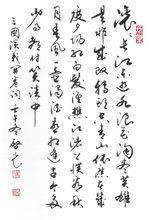 滚滚长江东逝水浪花淘尽英雄
是非成败转头空青山依旧在几
度夕阳红白发渔樵江渚上惯看秋
月春风一壶浊酒喜相逢古今多
少事都付笑谈中
三国演义开卷词 壬午冬